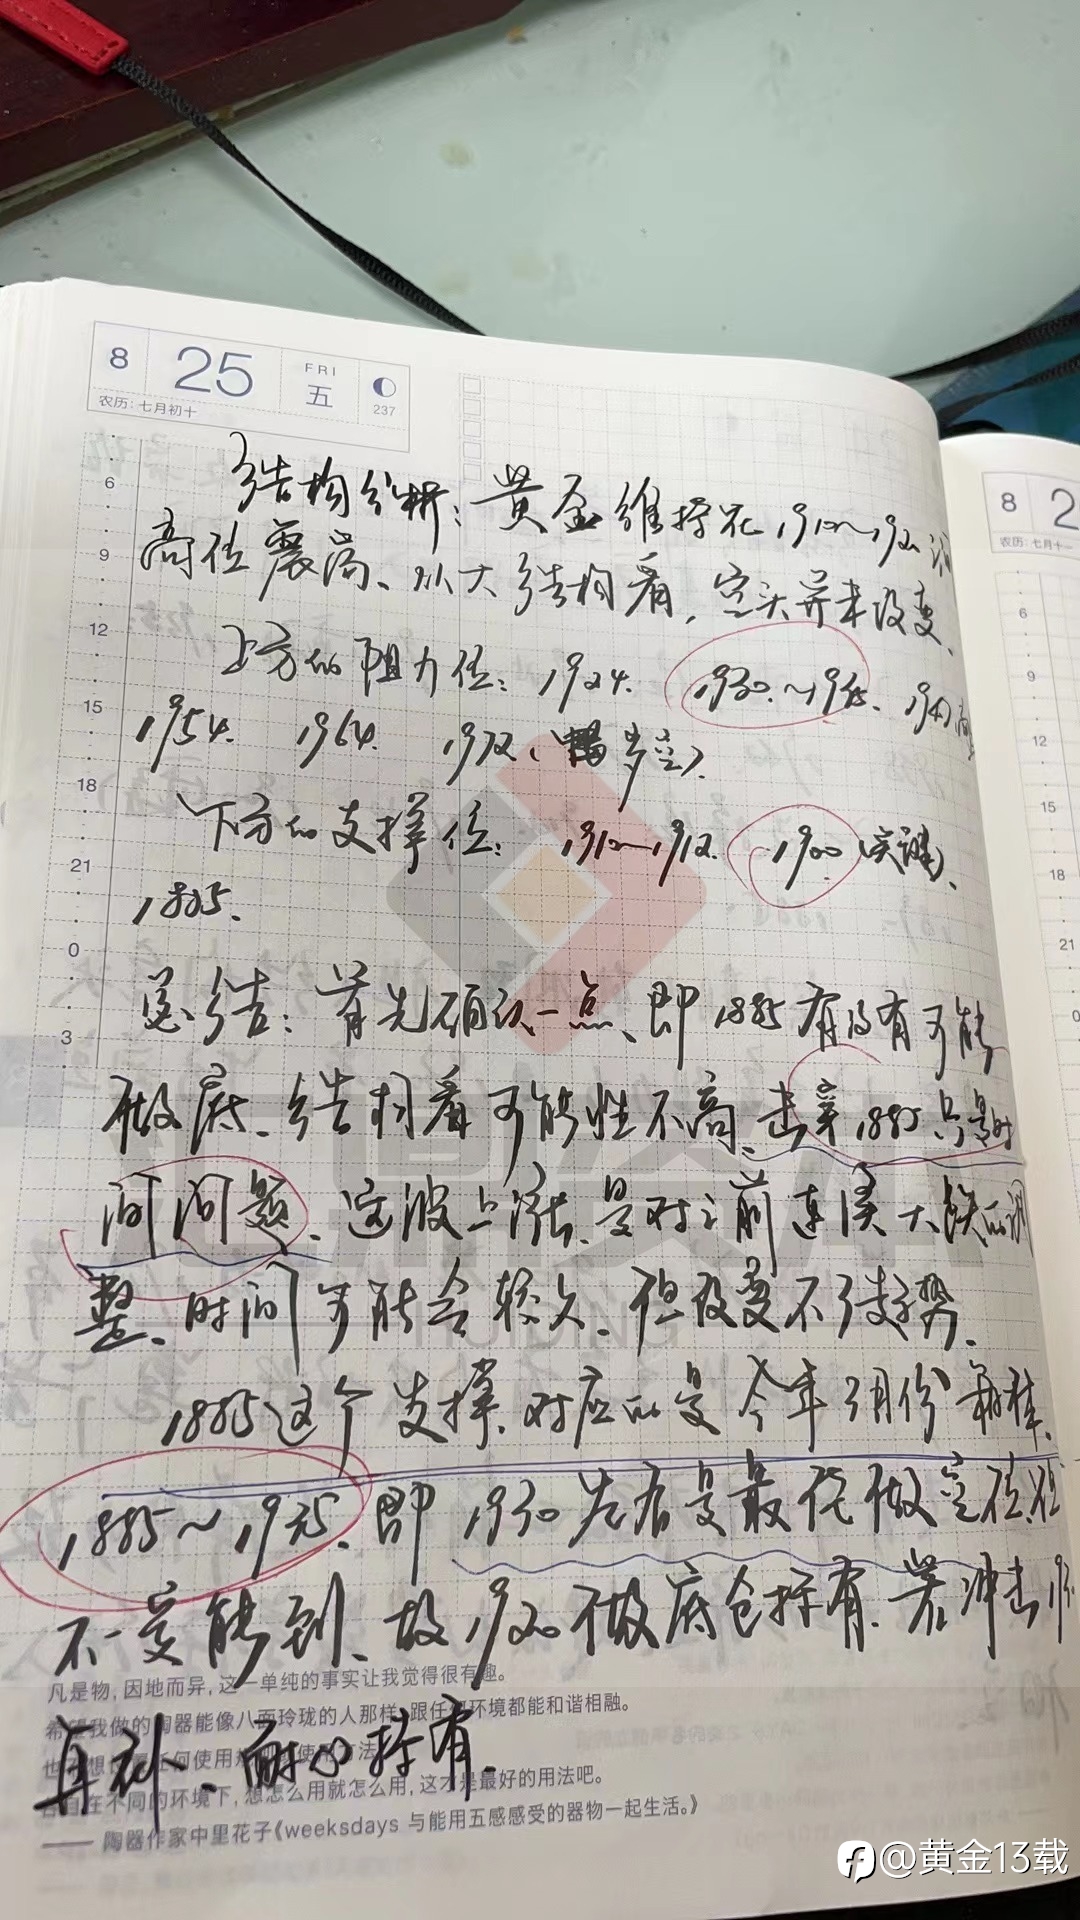 8 25 FRI 五 237
农历：七月初十
8 2
农历：七月十一
结构分析：黄金维持在1910~192
高位震荡、从大结构看，空头并未改变、
上方的阻力位：1924. 1930.~1935.
1954. 1964. 1972（多空）.
下方的支撑位：1910~1912. 1900（关键）、
1885.
总结：首先确认一点、即1885有没有可能
做底、结构看可能性不高、击穿1885只是时
间问题、这波上涨、是对之前连续大跌的调
整、时间可能会较久、但改变不了趋势、
1885这个支撑、对应的是今年3月份
1885~1935. 即1930左右是最佳做空位、但
不一定能到、故1920做底仓持有、若冲击
再补、耐心持有.
6
9
12
15
18
21
0
3
6
9
12
15
18
21
0
凡是物，因地而异，这一单纯的事实让我觉得很有趣。
希望我做的陶器能像八面玲珑的人那样，跟任何环境都能和谐相融。
在不同的环境下，想怎么用就怎么用，这才是最好的用法吧。
—— 陶器作家中里花子《weeksdays 与能用五感感受的器物一起生活。》
@黄金13载